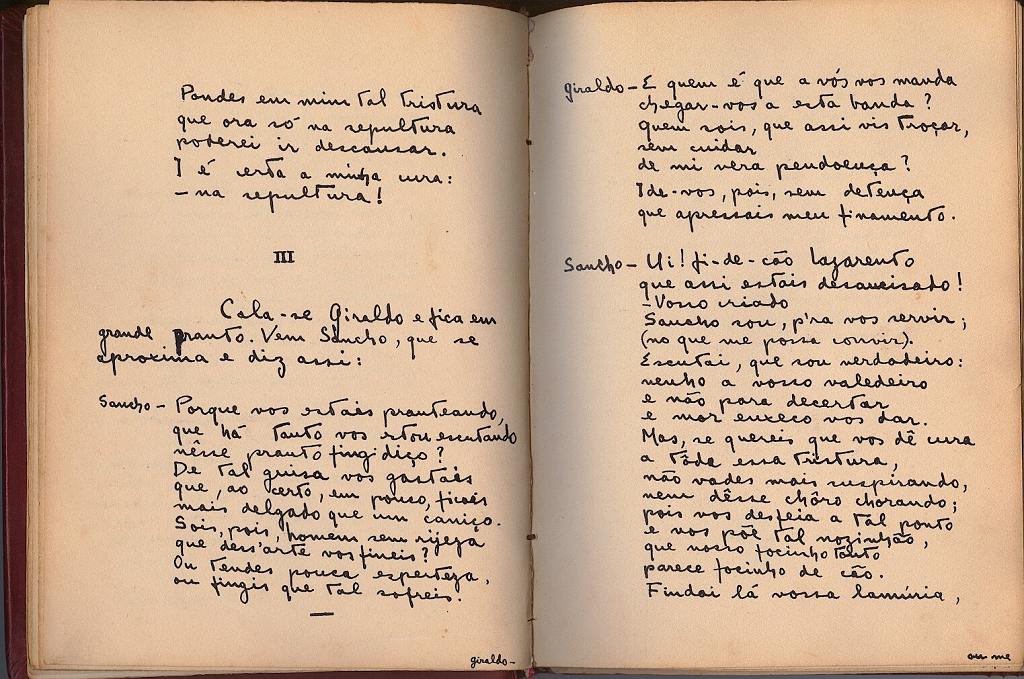 Pondes em mim tal tristura
que ora só na sepultura
poderei ir descansar.
I é certa a minha cura:
– na sepultura!
III
Cala-se Giraldo e fica em
grande pranto. Vem Sancho, que se
aproxima e diz assi:
Sancho – Porque vos estais pranteando,
que há tanto vos estou escutando
nêsse pranto fingidiço?
De tal guisa vos gastais
que, ao certo, em pouco, ficais
mais delgado que um caniço.
Sois, pois, homem sem rijeza
que dess'arte vos fineis?
Ou tendes pouca esperteza,
ou fingis que tal sofreis.
giraldo–
giraldo – E quem é que a vós vos manda
chegar-vos a esta banda?
Quem sois, que assi vis troçar,
sem cuidar
de mi vera pendoença?
Ide-vos, pois, sem detença
que apressais meu finamento.
Sancho – Ui! fi-de-cão lazarento
que assi estais desavisado!
– Vosso criado
Sancho sou, p'ra vos servir;
(no que me possa convir).
Escutai, que sou verdadeiro:
venho a vosso valedeiro
e não para decertar
e mor enxeco vos dar.
Mas, se quereis que vos dê cura
a tôda essa tristura,
não vades mais suspirando,
nem dêsse chôro chorando;
pois vos desfeia a tal ponto
e vos põe tal nozinhão,
que vosso focinho tonto
parece focinho de cão.
Findai lá vossa lamúria,
ou me